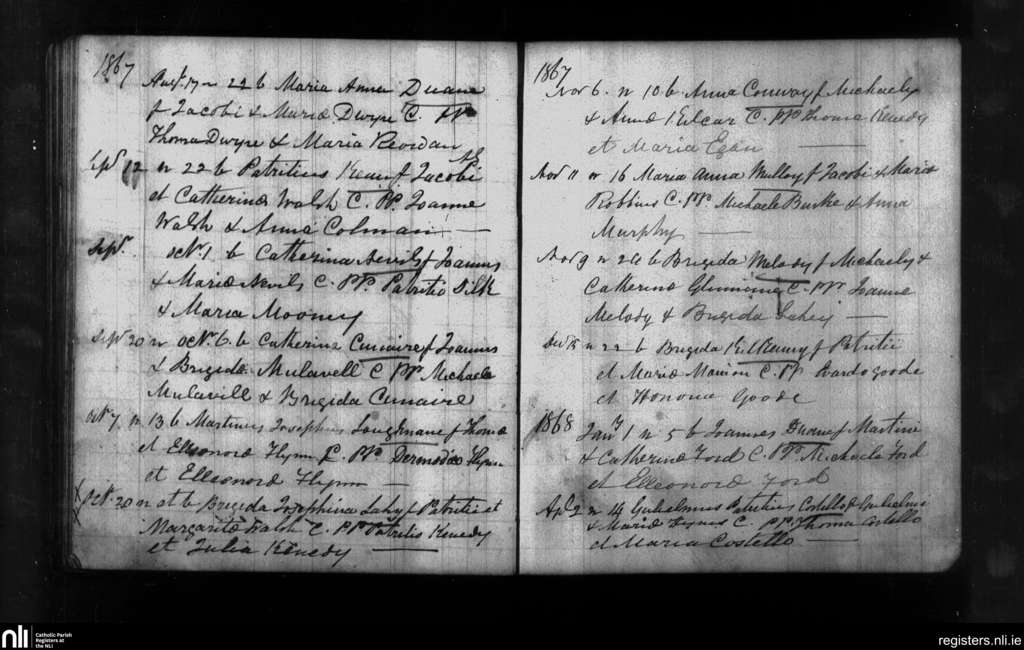 1867
Augt. 17 n 22 b Maria Anna Duane
f Jacobi & Mariæ Dwyre C. PP
Thoma Dwyre & Maria Reordan
Sepr 12 n 22 b Patritius f Jacobi
et Catherinæ Walsh C. PP. Joanne
Walsh & Anna Colman
Sepr. Octr. 1 b Catherina Nevils f Joannis
& Mariæ Nevils C. PP. Patritio Silk
& Maria Mooney
Sepr 20 n Octr. 6. b Catherina Cunaire f Joannis
& Brigidæ Mulavell C PP Michaele
Mulavill & Brigida Cunaire
Octr 7 n 13 b Martinus Josephus Loughnane f Thomæ
et Elleonoræ Flynn C. PP. Dermodio Flynn
et Elleonora Flynn
Octr. 20 n b Brigida Josephina Lahy f Patritii et
Margaritæ Walsh C. PP Patritio Kenedy
et Julia Kenedy
1867
Novr 6. n 10 b Anna Conway f Michaelis
& Annæ C. PP Thoma Kenedy
et Maria Egan
Novr 11 n 16 Maria Anna Mulloy f Jacobi & Mariæ
Robbins C. PP. Michaele Burke & Anna
Murphy
Novr 9 n 24 b Brigida Melody f Michaelis &
Catherinæ C. PP Joanne
Melody & Brigida Lahey
Decr 15 n 22 b Brigida Kilkenny f Patritii
et Mariæ Manion C. PP goode
et Honoria Goode
1868
Jany 1 n 5 b Joannes Duane f Martini
& Catherinæ Ford C. PP. Michaele Ford
et Elleonora Ford
Apl 2 n 14 Gulielmus Patritius Costello f Gulielmi
& Mariæ C. PP Thoma Costello
et Maria Costello
nli
Catholic Parish
Registers at
the NLI
registers.nli.ie